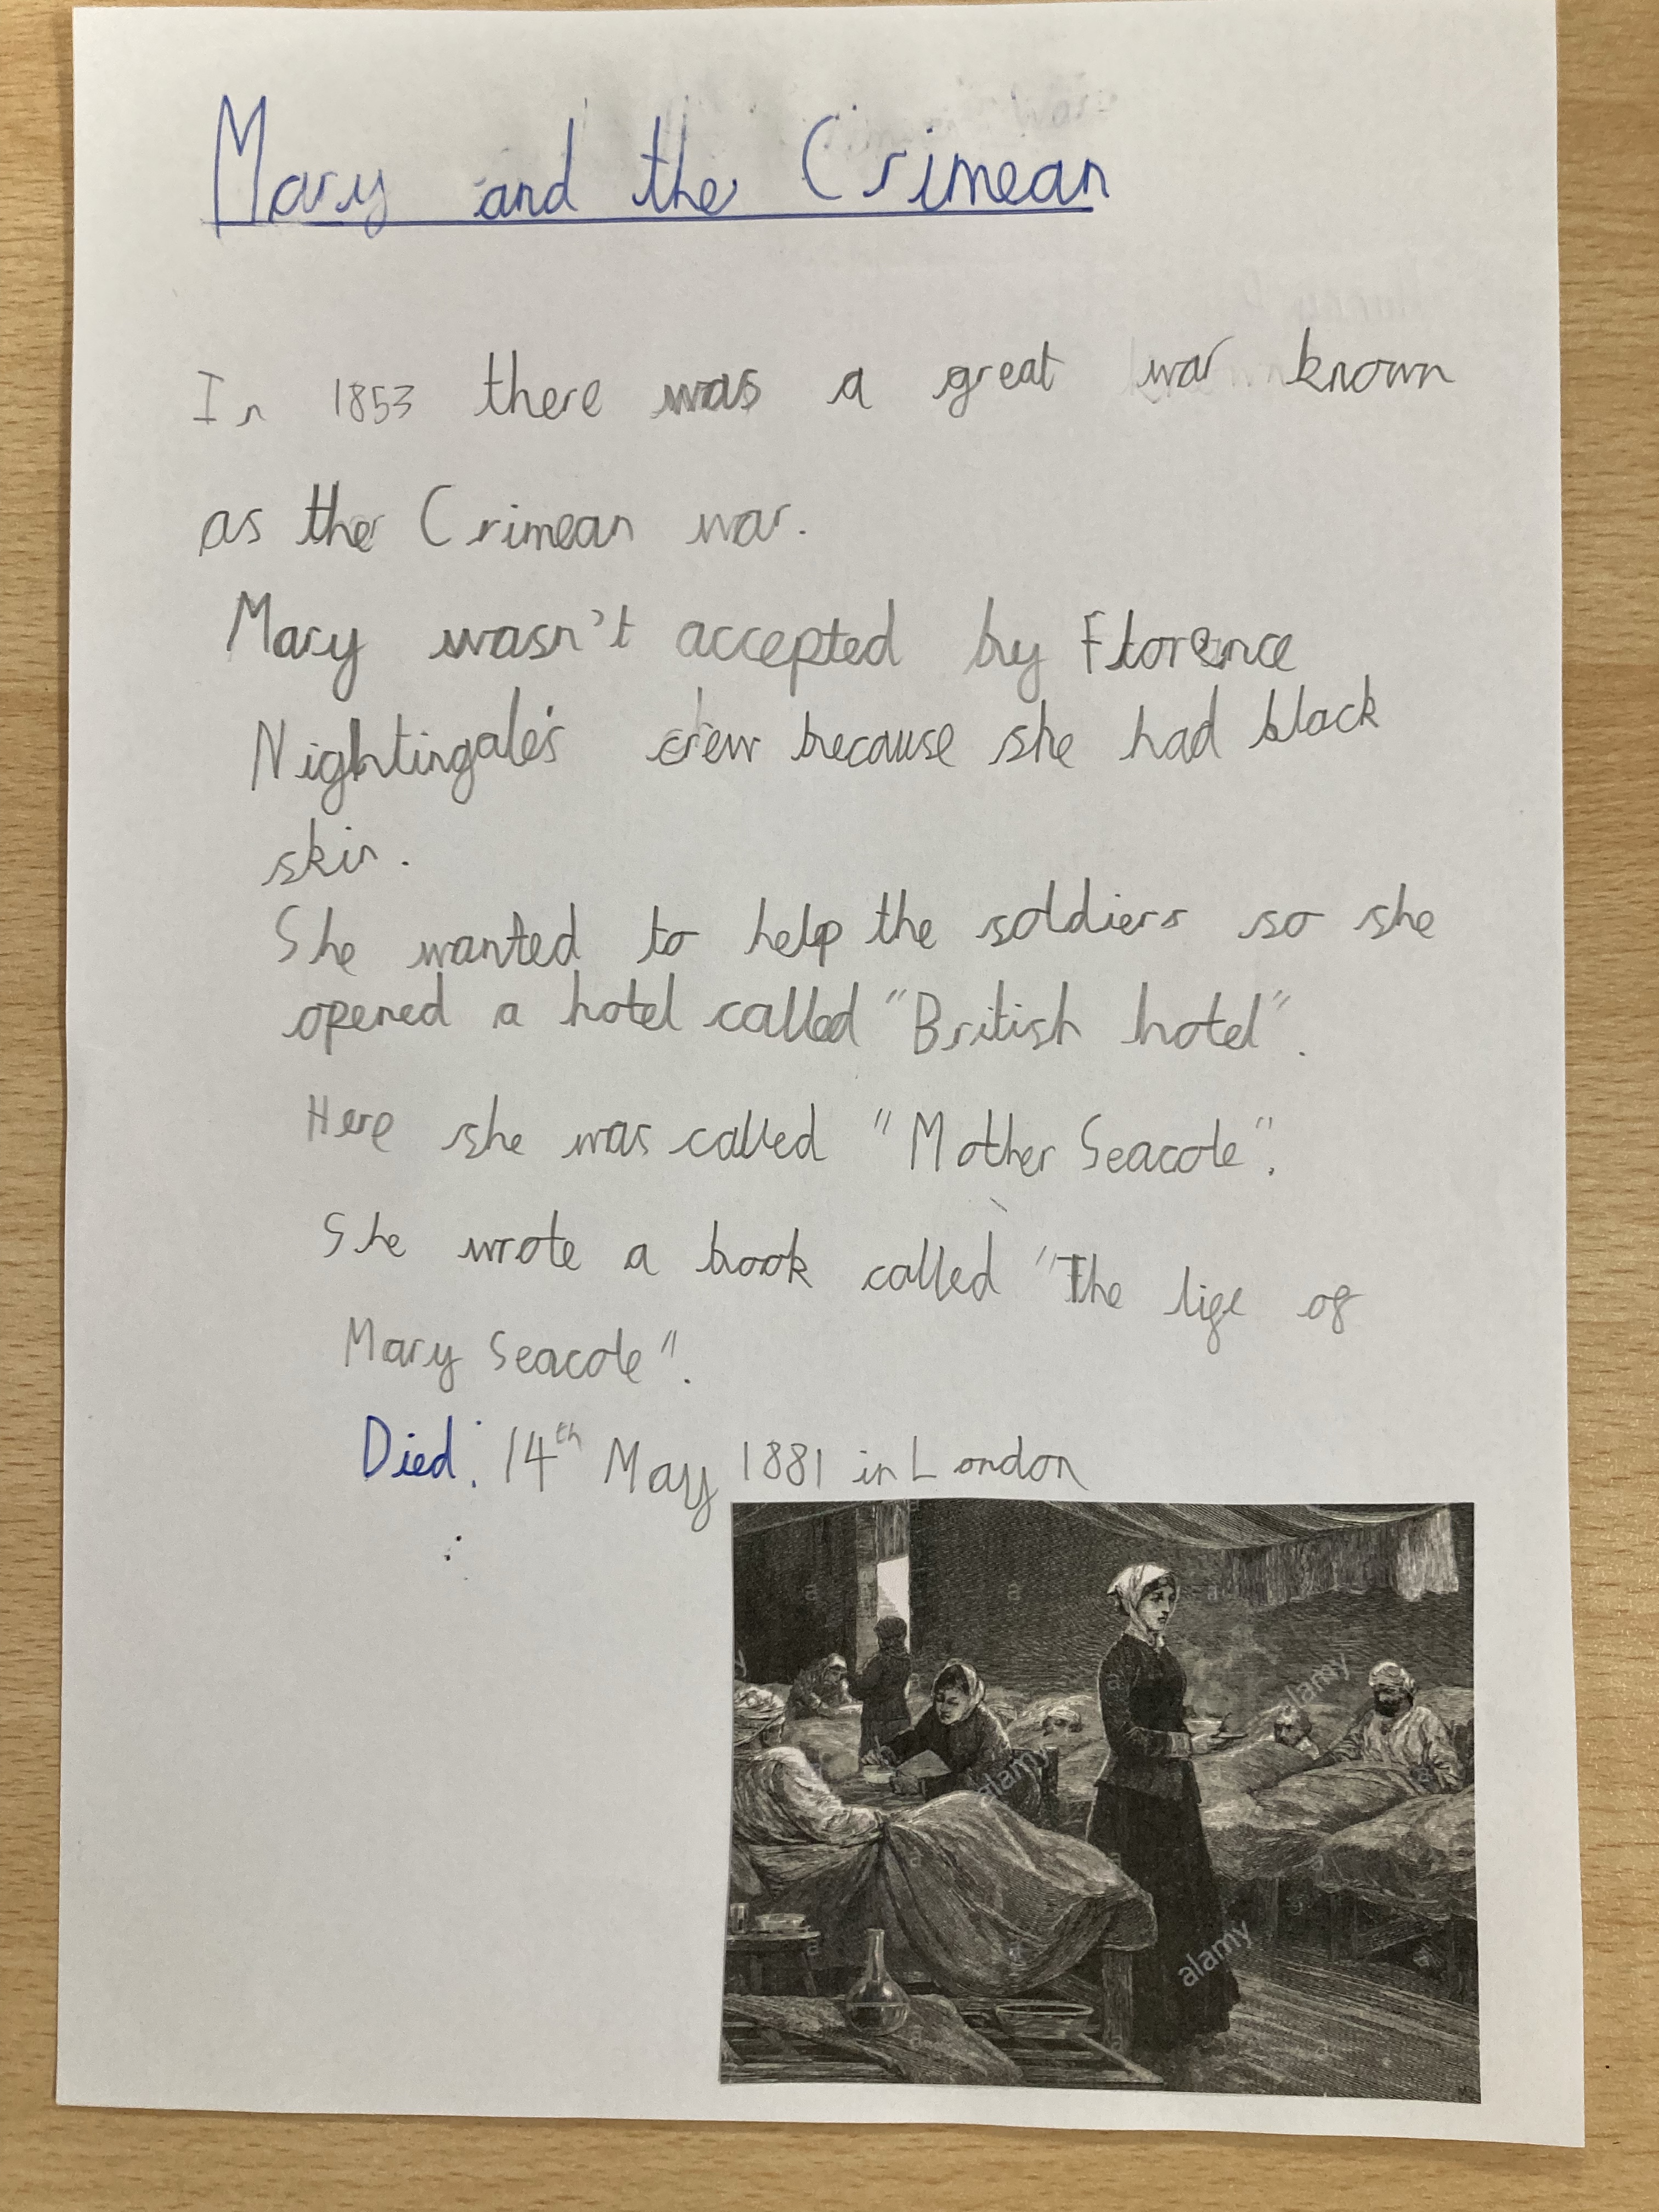 Mary and the Crimean
In 1853 there was a great war known
as the Crimean war.
Mary wasn't accepted by Florence
Nightingale's crew because she had black
skin.
She wanted to help the soldiers so she
opened a hotel called "British hotel".
Here she was called "Mother Seacole".
She wrote a book called "The life of
Mary Seacole".
Died: 14th May 1881 in London
alamy
alamy
alamy